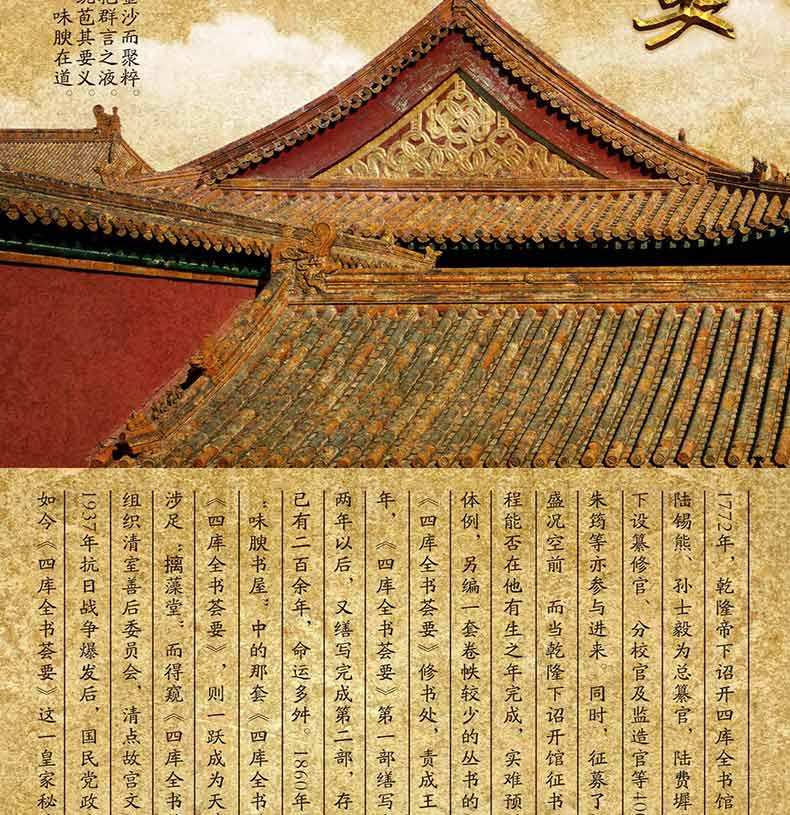 沙而聚粹。
群言之液
其要义。
味腴在道。
1772年，乾隆帝下诏开四库全书馆
陆锡熊、孙士毅为总纂官，陆费墀
下设纂修官、分校官及监造官等40
朱筠等亦参与进来 同时，征募了
盛况空前 而当乾隆下诏开馆征书
程能否在他有生之年完成，实难预
体例，另编一套卷帙较少的丛书的
《四库全书荟要》修书处，责成王
年，《四库全书荟要》第一部缮写
两年以后，又缮写完成第二部，存
已有二百余年，命运多舛。1860年
“味腴书屋”中的那套《四库全书
《四库全书荟要》，则一跃成为天
涉足“摛藻堂”而得窥《四库全书
组织清室善后委员会，清点故宫文
1937年抗日战争爆发后，国民党政
如今《四库全书荟要》这一皇家秘